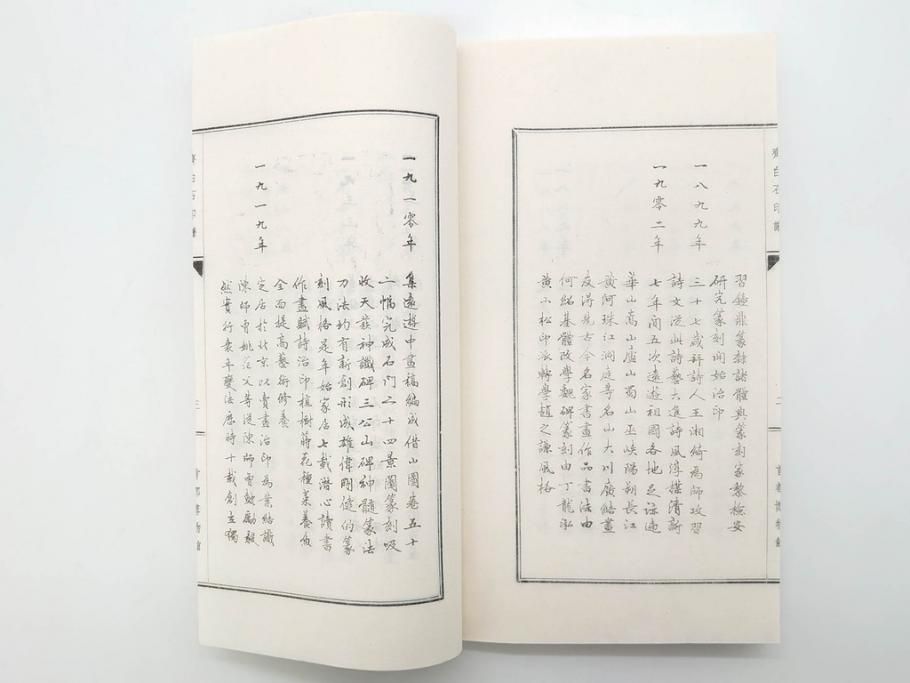 齊白石印譜
二
首都博物館
習鐘鼎篆隸諸體與篆刻家黎安
研究篆刻開始治印
一八九九年 三十七歲拜詩人王湘綺為師攻習
詩文從此詩藝大進詩風淳樸清新
一九零二年 七年間五次遠遊祖國各地足迹遍
華山嵩山廬山蜀山巫峽陽朔長江
黃河珠江洞庭等名山大川廣結畫
友得見古今名家書畫作品書法由
何紹基體改學魏碑篆刻由丁龍泓
黃小松印派轉學趙之謙風格
一九一零年 集遠遊中畫稿編成借山圖卷五十
二幅完成石門二十四景圖篆刻吸
收天發神讖碑三公山碑神髓篆法
刀法均有新創形成雄偉剛健的篆
刻風格是年始家居七載潛心讀書
作畫賦詩治印植樹蒔花種菜養魚
全面提高藝術修養
一九一九年 定居於北京以賣畫治印為業結識
陳師曾姚茫父等從陳師曾鼓勵毅
然實行衰年變法歷時十載創立獨
齊白石印譜
三
首都博物館